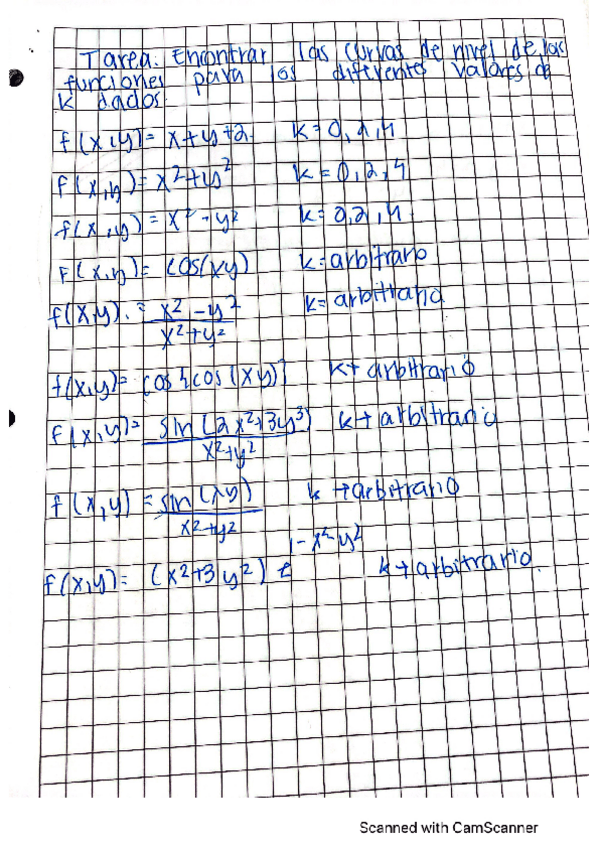 Tarea: Encontrar las curvas de nivel de las
funciones para los diferentes valores de
k dados
f(x,y)= x+y+2. k=0,2,4
f(x,y)= x²+y² k=0,2,4
f(x,y)= x²-y² k=0,2,4
f(x,y)= cos(xy) k=arbitrario
f(x,y).= x²-y² / x²+y² k=arbitrario
f(x,y)= cos[cos(xy)] k→arbitrario
f(x,y)= sin(2x²+3y³) / x²+y² k→arbitrario
f(x,y)= sin(xy) / x²+y² k→arbitrario
f(x,y)= (x²+3y²) e^1-x²-y² k→arbitrario.
Scanned with CamScanner